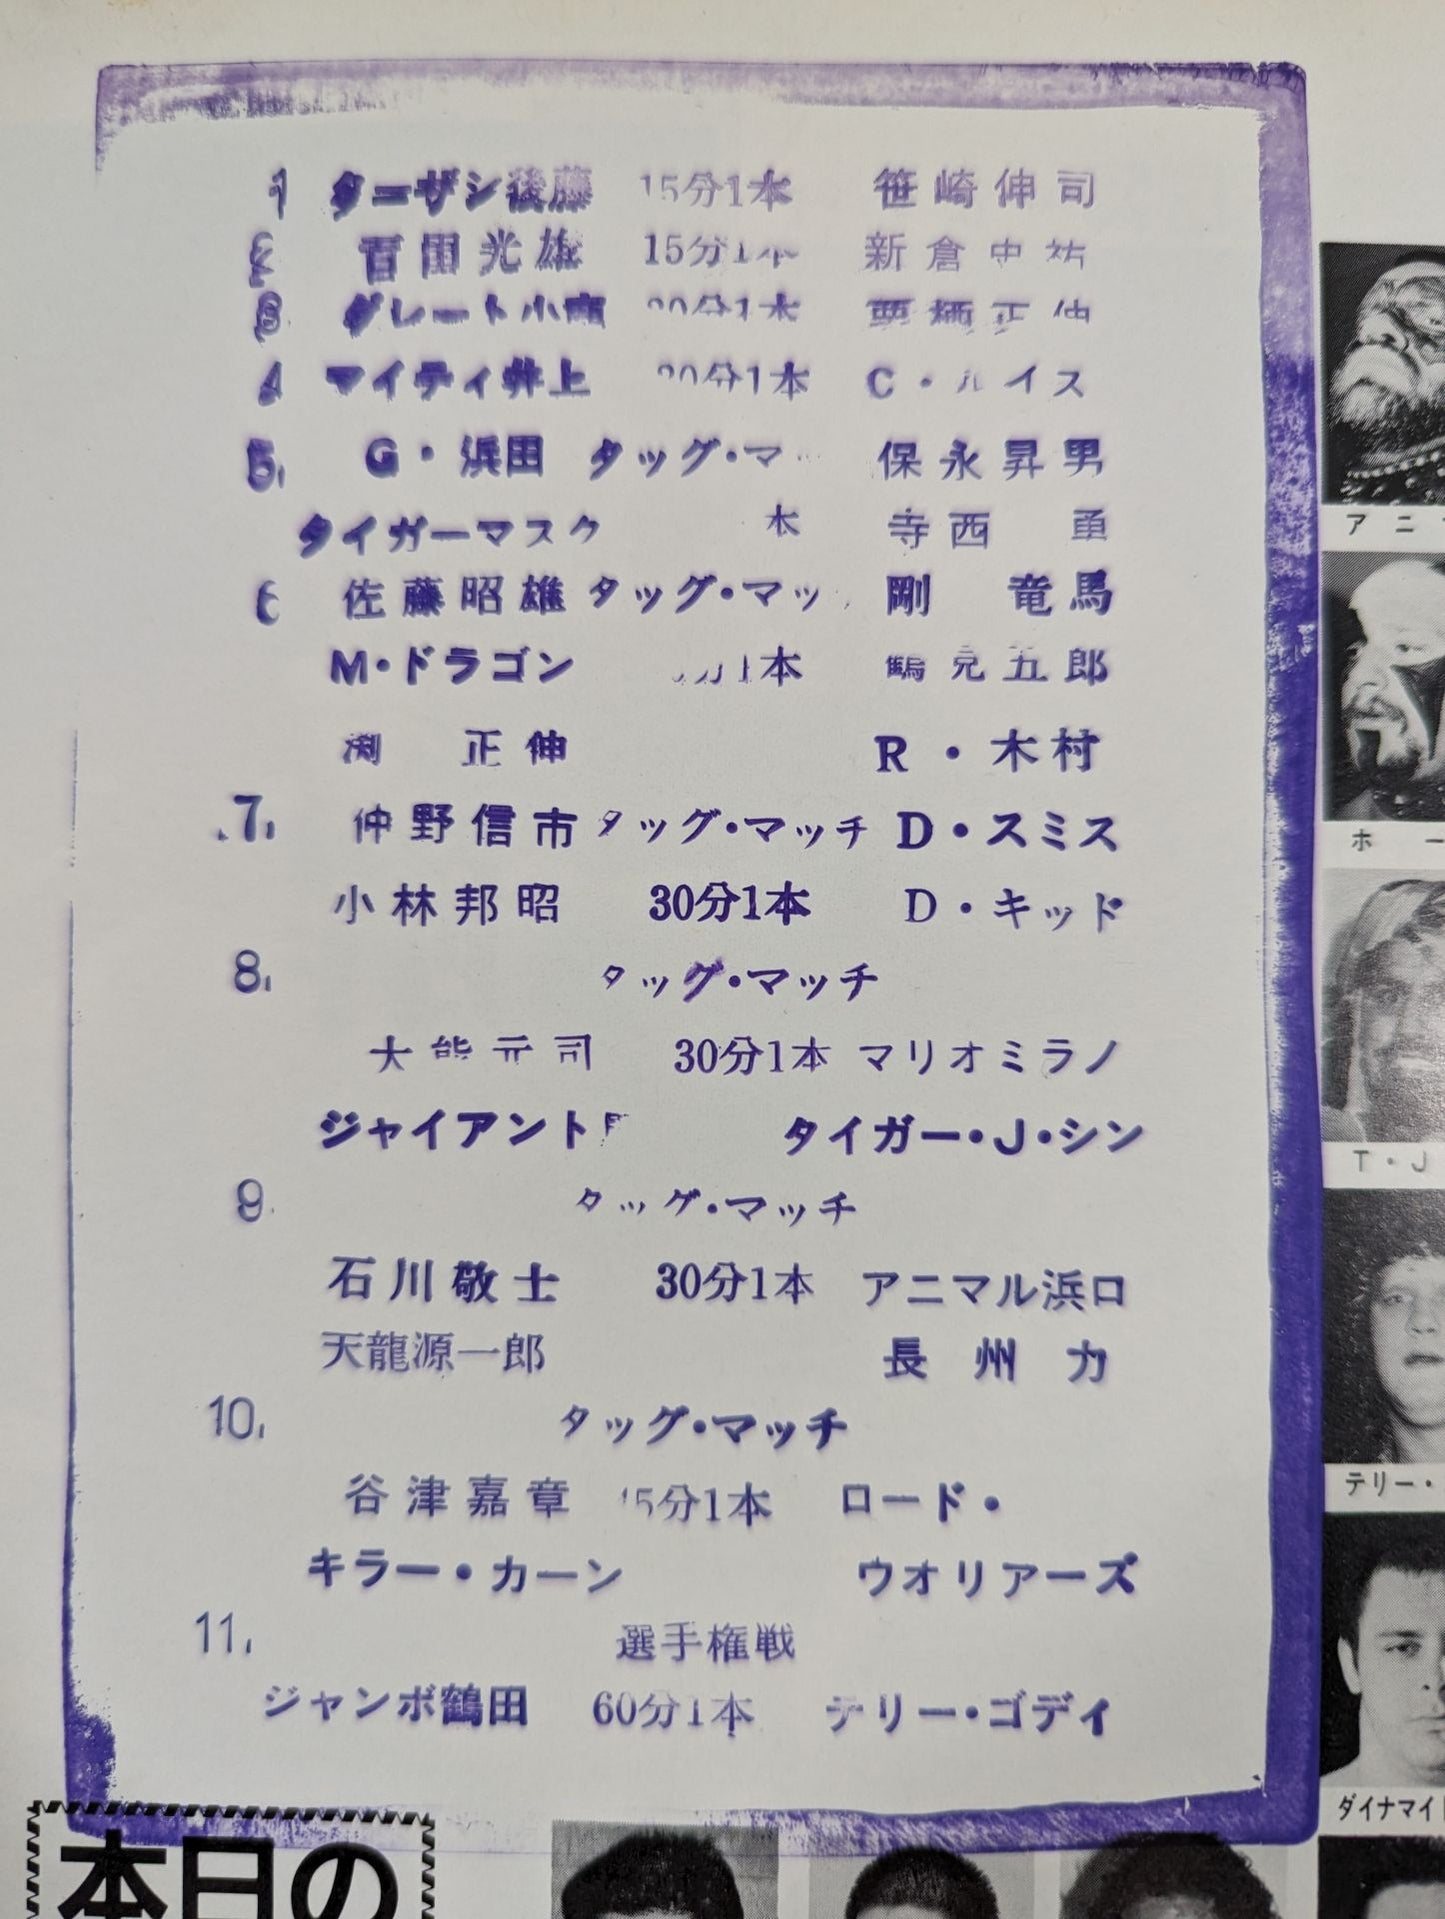 1 ターザン後藤 15分1本 笹崎伸司
2 百田光雄 15分1本 新倉史祐
3 グレート小鹿 20分1本 栗栖正伸
4 マイティ井上 20分1本 C・ルイス
5, G・浜田 タッグ・マ 保永昇男
タイガーマスク 本 寺西 勇
6 佐藤昭雄 タッグ・マッ 剛 竜馬
M・ドラゴン 1本 鶴見五郎
渕 正伸 R・木村
7, 仲野信市 タッグ・マッチ D・スミス
小林邦昭 30分1本 D・キッド
8, タッグ・マッチ
大熊元司 30分1本 マリオミラノ
ジャイアント タイガー・J・シン
9. タッグ・マッチ
石川敬士 30分1本 アニマル浜口
天龍源一郎 長州力
10, タッグ・マッチ
谷津嘉章 45分1本 ロード・
キラー・カーン ウオリアーズ
11, 選手権戦
ジャンボ鶴田 60分1本 テリー・ゴディ
アニ
ホー
T・J
テリー・
ダイナマイト
本日の